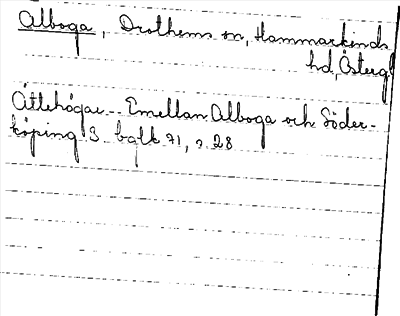 Alboga, Drothems sn, Hammarkinds
hd, Österg.
Ättehögar. Emellan Alboga och Söder-
köping S bglk 71, s 28